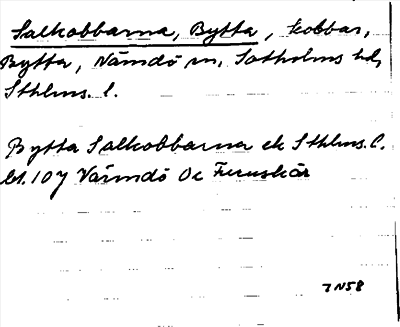 Salkobbarna, Bytta, kobbar,
Bytta, Nämdö sn, Sotholms hd,
Sthlms. l.
Bytta Salkobbarna ek Sthlms. l.
bl. 107 Värmdö Oc Furuskär
7 N 58